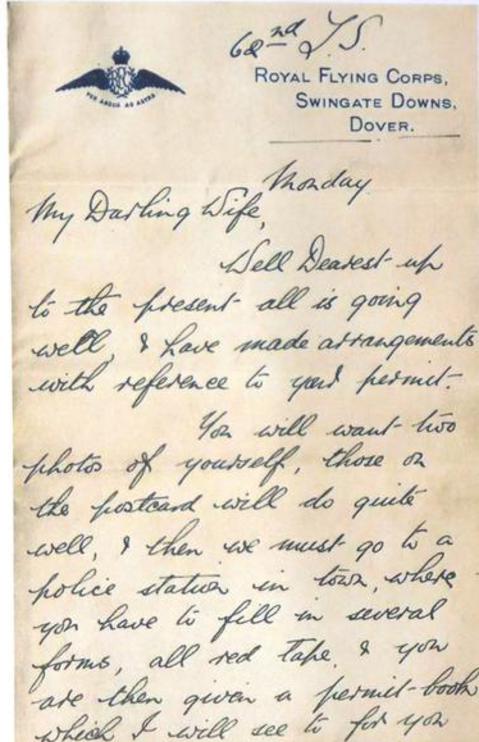 62nd T.S.
ROYAL FLYING CORPS,
SWINGATE DOWNS,
DOVER.
PER ARDUA AD ASTRA
Monday
My Darling Wife,
Well Dearest up
to the present all is going
well, & have made arrangements
with reference to your permit.
You will want two
photos of yourself, those on
the postcard will do quite
well, & then we must go to a
police station in town, where
you have to fill in several
forms, all red tape, & you
are then given a permit-book
which I will see to for you